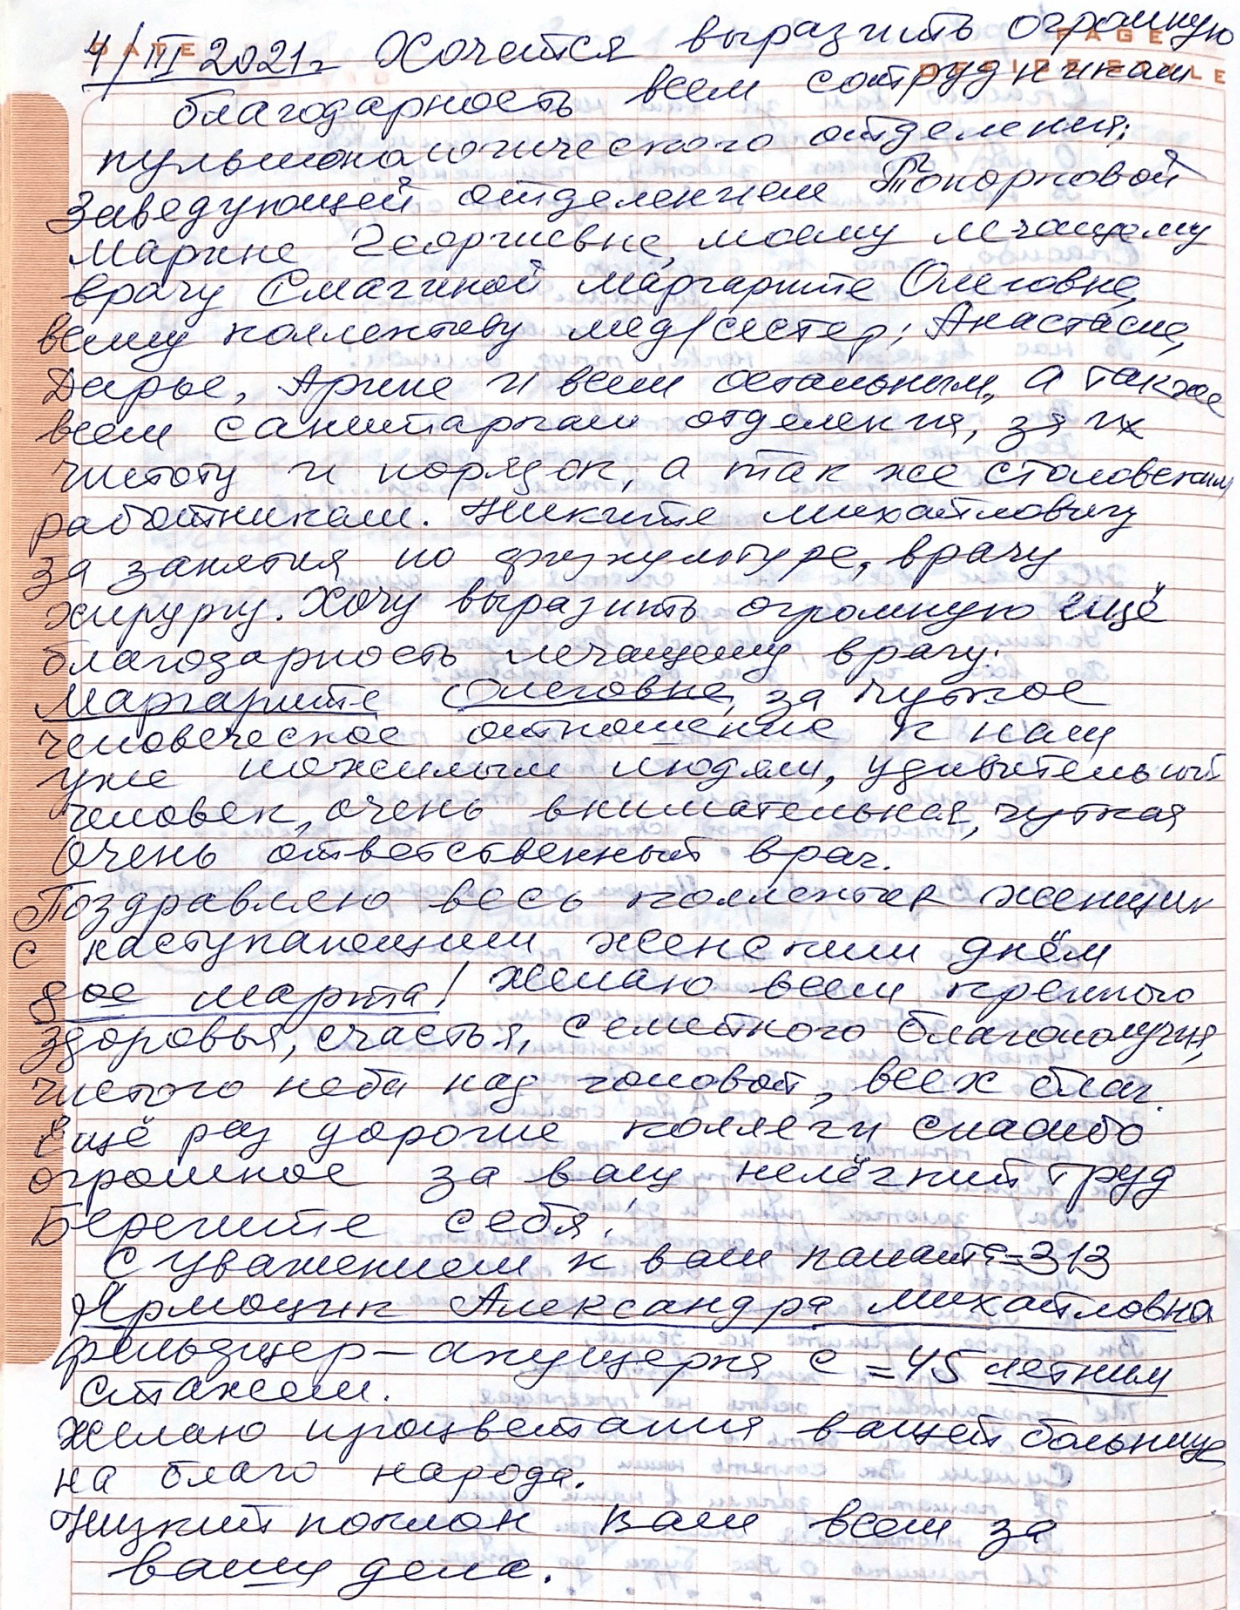 DATE
PAGE
4/III 2021г Хочется выразить огромную
благодарность всем сотрудникам
пульмонологического отделения:
Заведующей отделением Топорковой
Марине Георгиевне, моему лечащему
врачу Смагиной Маргарите Олеговне,
всему коллективу мед/сестер: Анастасие,
Дарье, Арине и всем остальным, а также
всем санитаркам отделения, за их
чистоту и порядок, а так же столовским
работникам. Никите Михайловичу
за занятия по физкультуре, врачу
хирургу. Хочу выразить огромную ещё
благодарность лечащему врачу:
Маргарите Олеговне, за чуткое
человеческое отношение к нам
уже пожилым людям, удивительный
человек, очень внимательная, чуткая
Очень ответственный врач.
Поздравляю весь коллектив женщин
с наступающим женским днём
8ое марта! Желаю всем крепкого
здоровья, счастья, семейного благополучия,
чистого неба над головой, всех благ.
Ещё раз дорогие коллеги спасибо
огромное за ваш нелёгкий труд
Берегите себя!
С уважением к вам палата=313
Ярмощик Александра Михайловна
фельдшер-акушерка с =45 летним
стажем.
Желаю процветания вашей больнице
на благо народа.
Низкий поклон вам всем за
ваши дела.